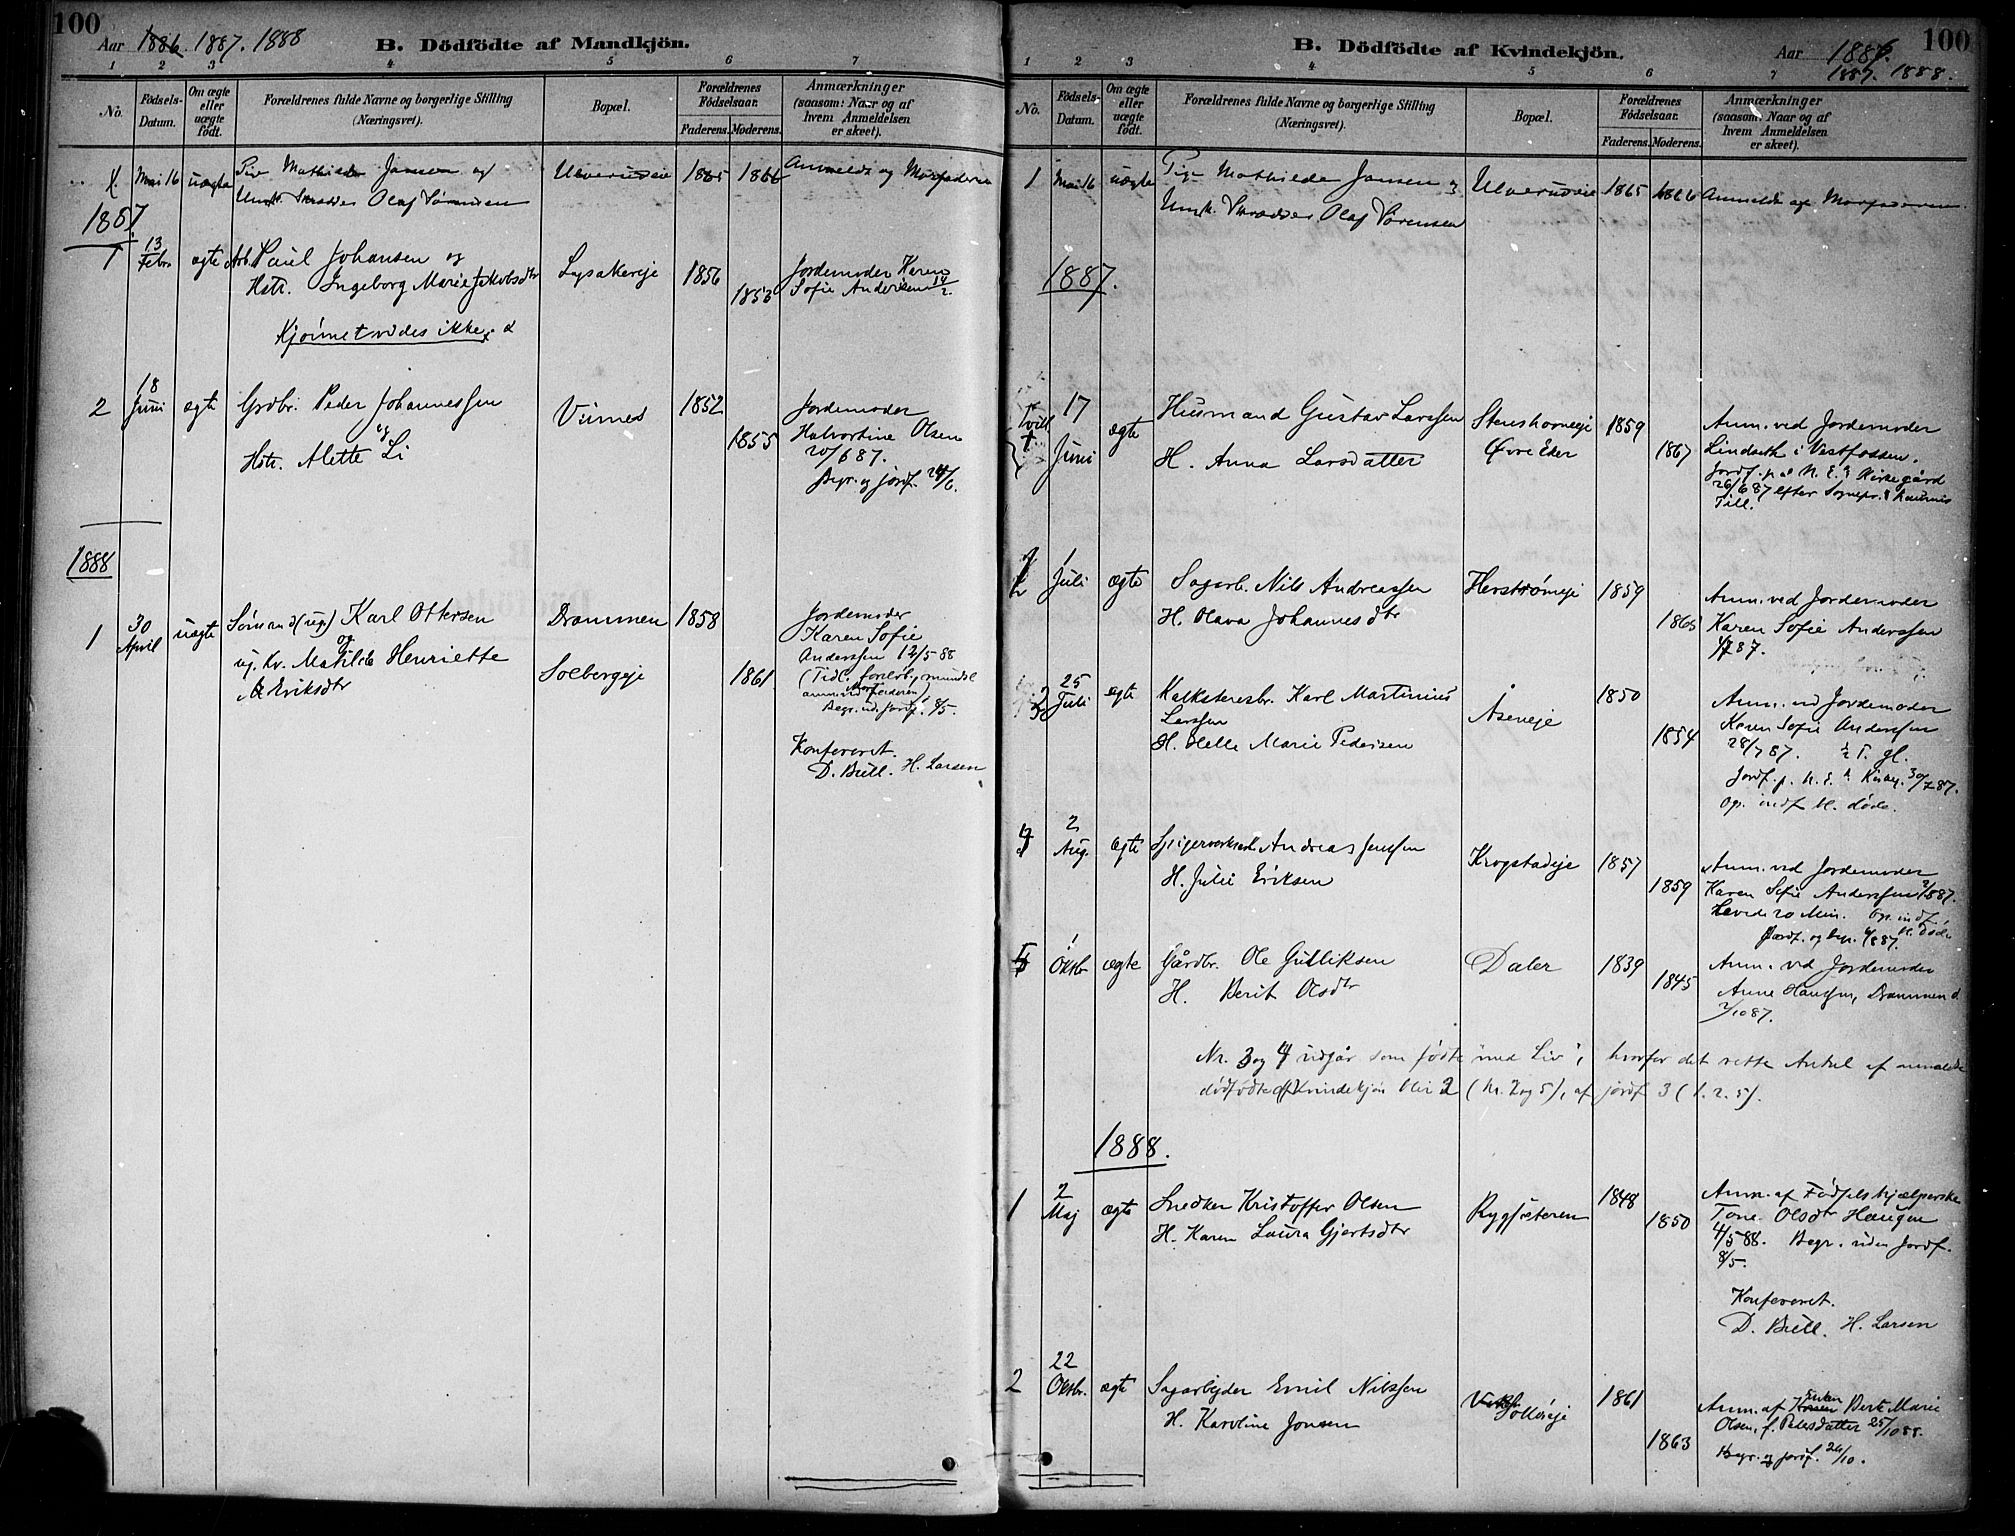 100
Aar 1886. 1887. 1888
B. Dödfödte af Mandkjön.
1 2 3 4 5 6 7
No.
Födsels-Datum.
Om ægte eller uægte födt.
Forældrenes fulde Navne og borgerlige Stilling (Næringsvei).
Bopæl.
Forældrenes Födselsaar.
Faderens. Moderens.
Anmærkninger (saasom: Naar og af hvem Anmeldelsen er skeet).
1. Mai 16 uægte Pige Mathilde Jansen og Ulverudeie 1865 1866 Anmeldt af Morfaderen
Umk. Skrædder Olaf Sørensen
1887
1 13 Febr. ægte Arb. Paul Johansen og Lysakereje 1856 Jordemoder Karen
Hstr. Ingeborg Marie Jakobsdtr 1853 Sofie Andersen 14/2.
Kjönnet vides ikke
2 18 Juni ægte Grdbr. Peder Johannessen Virnes 1852 Jordemoder
og
Hstr. Alette Li 1855 Halvortine Olsen
20/6 87.
Begr. og jordf. 24/6.
1888
1 30 April uægte Sømand (ug.) Karl Ottersen Drammen 1858 Jordemoder
og Karen Sofie
ug. Kv. Matilde Henriette Solbergeje 1861 Anderssen 12/5 88
Eriksdtr (Tidl. foreløb. mundtl.
anm. ved Morfaderen)
Begr. ud. Jordf. 8/5.
Konfereret.
D. Bull. H. Larsen
B. Dödfödte af Kvindekjön.
Aar 1886
1887. 1888.
100
1 2 3 4 5 6 7
No.
Födsels-Datum.
Om ægte eller uægte födt.
Forældrenes fulde Navne og borgerlige Stilling (Næringsvei).
Bopæl.
Forældrenes Födselsaar.
Faderens. Moderens.
Anmærkninger (saasom: Naar og af hvem Anmeldelsen er skeet).
1 Mai 16 uægte Pige Mathilde Jansen og Ulverudeie 1865 1866 Anmeldt af Morfaderen.
Umk. Skrædder Olaf Sørensen
1887.
Tvill. 17 Juni ægte Husmand Gustav Larssen Stenshorneje 1859 Anm. ved Jordemoder
H. Anna Larsdatter Øvre Eker 1867 Lindseth i Vestfossen.
Jordf. p. N. E. Kirkegård
26/6 87 efter Sognepr.
Till.
2 1 Juli ægte Sagarb. Nils Andreassen Herstrømeje 1859 Anm. ved Jordemoder
H. Olava Johannesdtr 1865 Karen Sofie Anderssen
4/7 87.
3 25 Juli ægte Kalkstensbr. Karl Martinius 1850 Anm. ved Jordemoder
Larssen Åseneje Karen Sofie Anderssen
H. Helle Marie Pedersen 1854 28/7 87. ½ T. gl.
Jordf. p. N. E. Kirkeg. 30/7 87.
Og. indf. bl. døde.
4 2 Aug. ægte Spigerverksarb. Andreas Jenssen Krogstadeje 1857 Anm. ved Jordemoder
H. Julie Eriksen 1859 Karen Sofie Anderssen 3/8 87.
Levede 20 Min. Og. indf.
bl. døde
Jordf. og begr. 4/8 87.
5 1 Oktbr ægte Gårdbr. Ole Gulliksen Daler 1839 Anm. ved Jordemoder
H. Berit Olsdtr 1845 Anne Hanssen, Drammen d.
2/10 87.
Nr. 3 og 4 udgår som fødte "med Liv", hvorfor det rette Antal af anmeldte
dødfødte af Kvindekjön blir 2 (Nr. 2 og 5), af jordf. 3 (1. 2. 5).
1888.
1 2 Maj ægte Snedker Kristoffer Olsen Rygsæteren 1848 Anm. af Fødselshjælperske
H. Karen Laura Gjertsdtr 1850 Tone Olsdtr Haugen
4/5 88. Begr. uden Jordf.
8/5.
Konfereret.
D. Bull. H. Larsen
2 22 Oktbr. ægte Sagarbejder Emil Nilssen Solbergeje 1861 Anm. af Enken Berte Marie
H. Karoline Jonsen 1863 Olsen, f. Pedersdatter 25/10 88.
Begr. og jordf. 26/10.